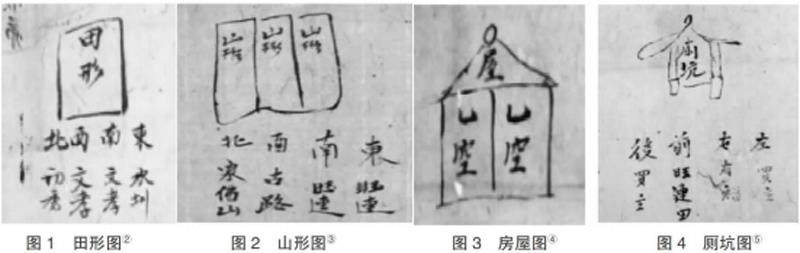 田形
東 水圳
南 文孝
西 文孝
北
图1 田形图②
山形
山形
山形
東 旺連
南 旺連
西 古路
北
图2 山形图③
屋
空
空
图3 房屋图④
廁坑
左 買主
右
前 旺連田
後 買主
图4 厕坑图⑤